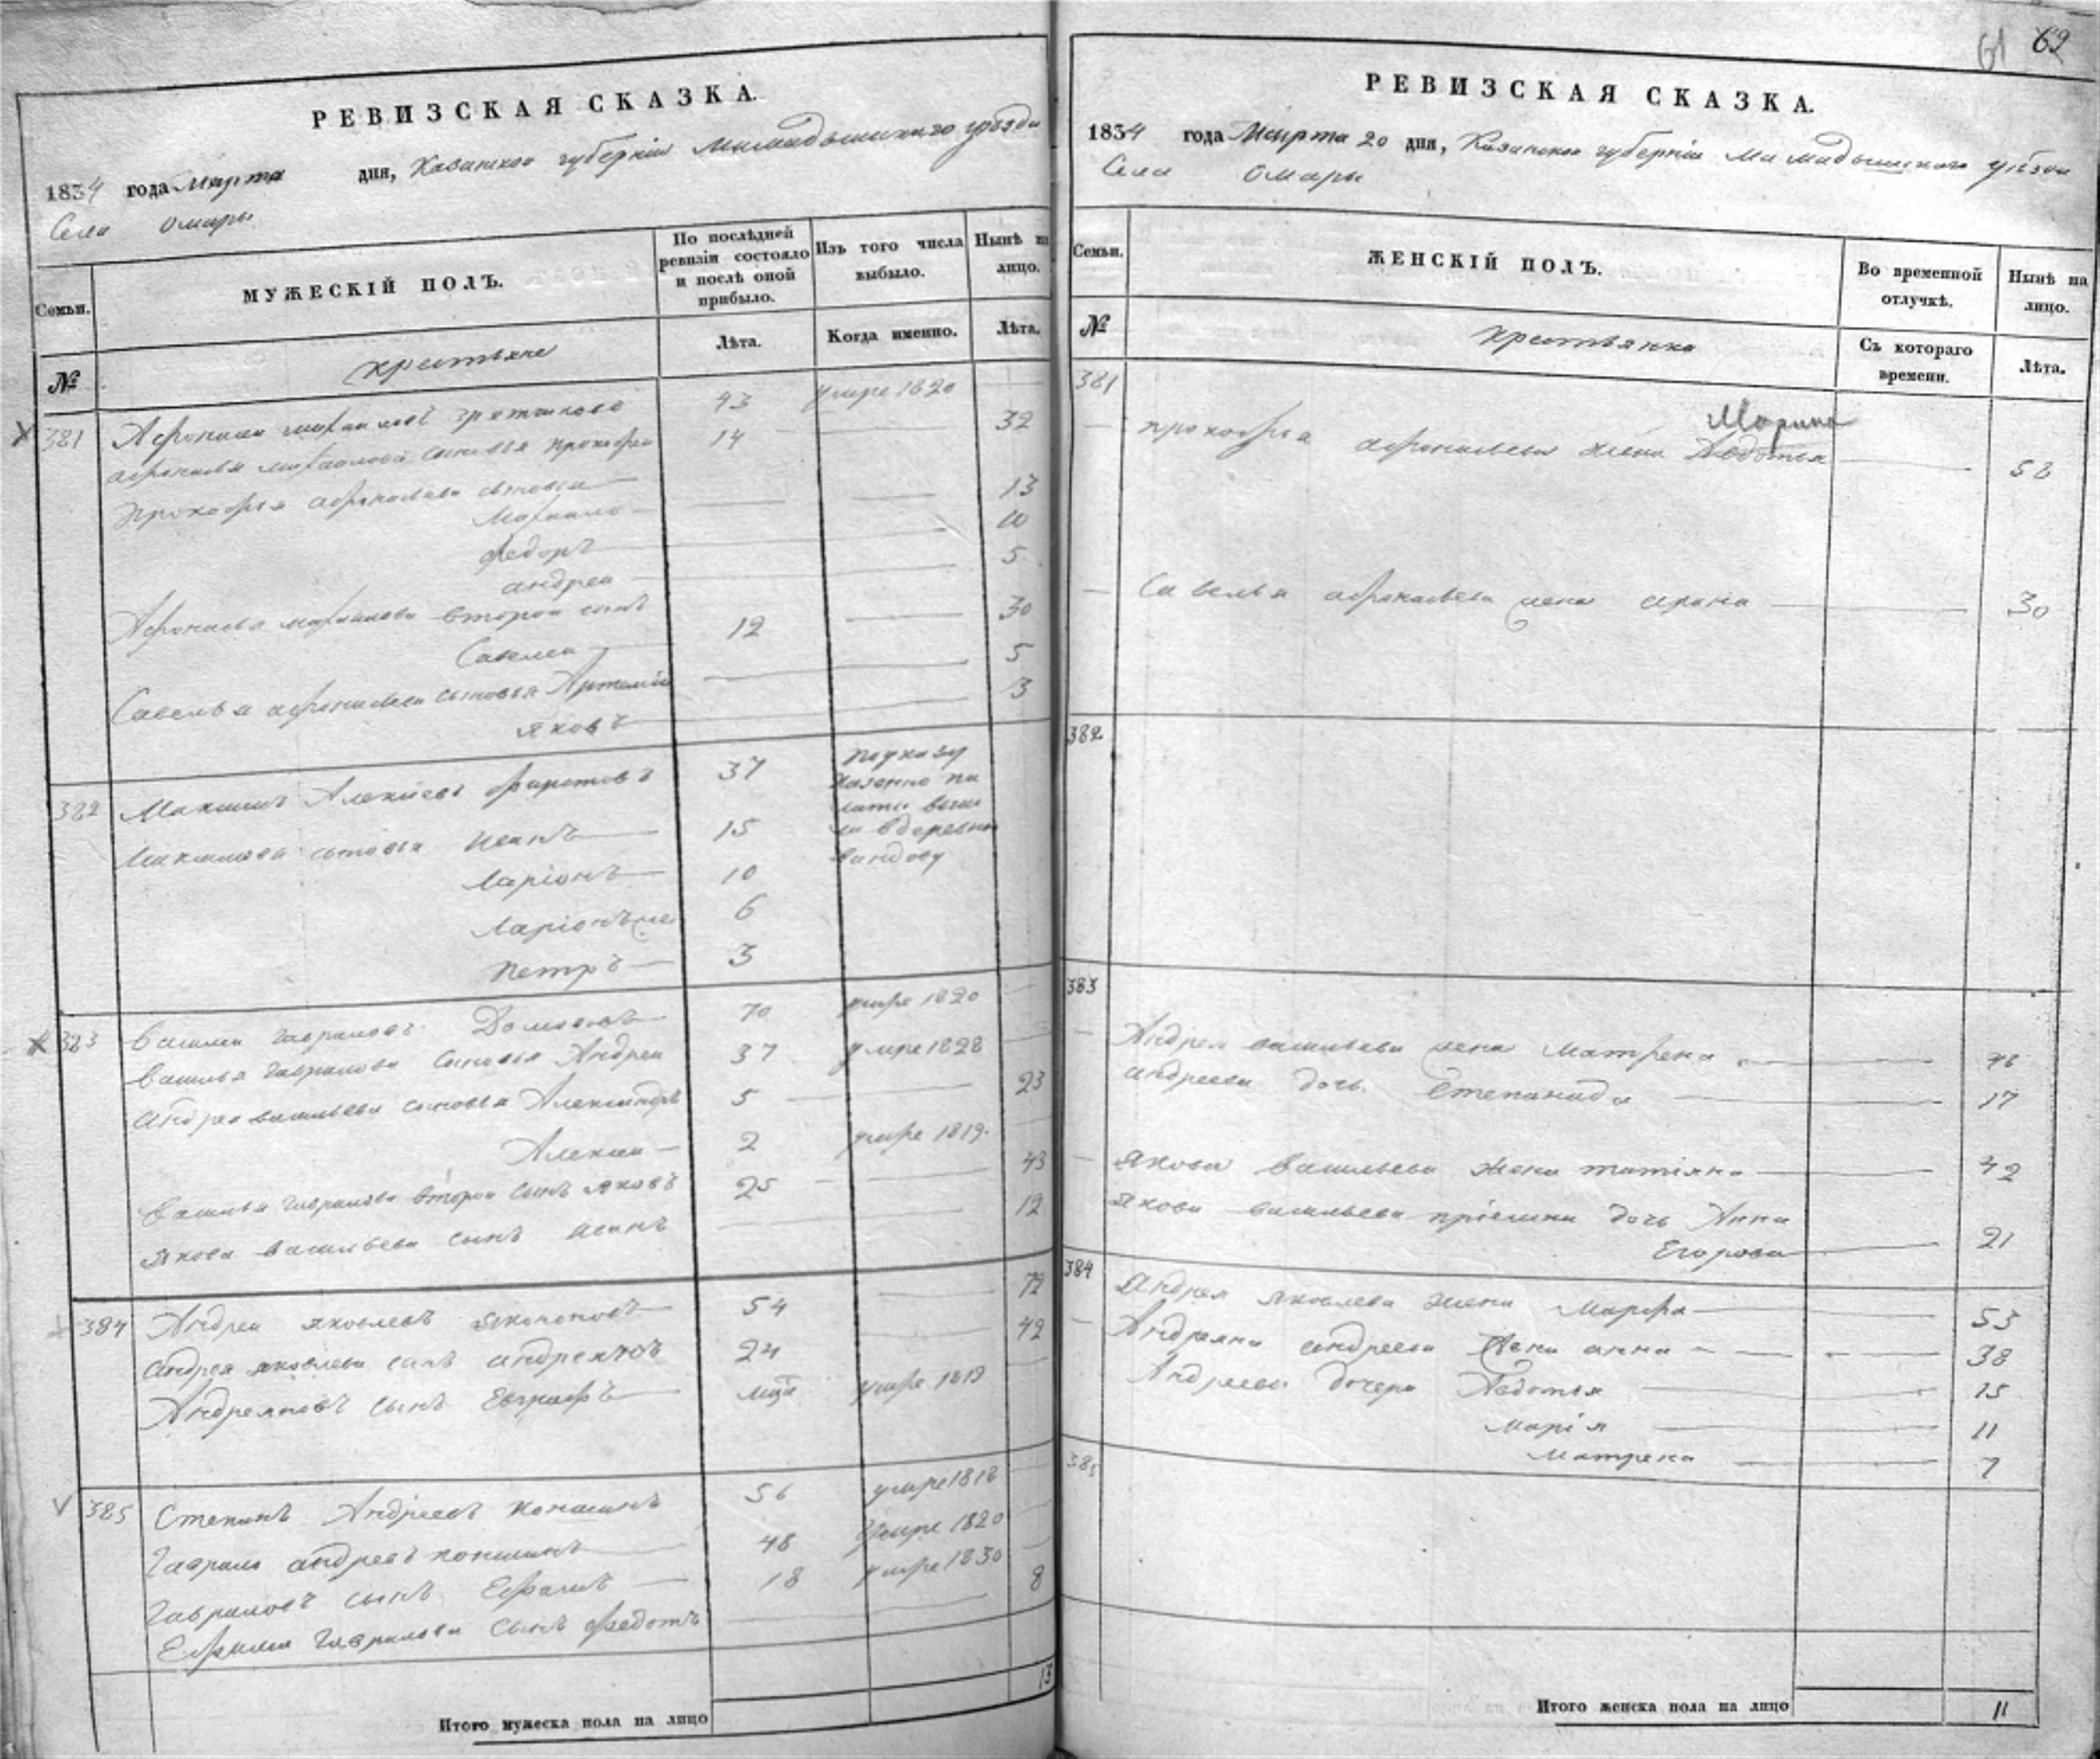 РЕВИЗСКАЯ СКАЗКА.
1834 года Марта дня, Казанской губернiи Мамадышскаго уѣзда
Села Омары
Семьи.
МУЖЕСКІЙ ПОЛЪ.
По послѣдней ревизіи состояло и послѣ оной прибыло.
Изъ того числа выбыло.
Нынѣ на лицо.
№
крестьяне
Лѣта.
Когда именно.
Лѣта.
381 Афонасей михаиловъ 43 умре 1820
афонасья михаилова сыновья прокофеи 14 32
прокофья афонасьева сыновья
Михаило 13
Федоръ 10
андреи 5
Афонасья михаилова второй сынъ
Савелеи 12 30
Савелья афонасьева сыновья Артемiи 5
яковъ 3
382 Максимъ Алексѣевъ 37 по указу
казенно па
латы выш
ли в деревню
Максимовы сыновья иванъ 15
Ларiонъ 10
Ларiонъ же 6
петръ 3
383 Василеи гавриловъ 70 умре 1820
Василья гаврилова сыновья Андреи 37 умре 1828
андрея васильева сыновья Александръ 5 23
Алексеи 2 умре 1819.
Василья гаврилова второи сынъ яковъ 25 43
якова васильева сынъ иванъ 12
384 Андреи яковлевъ 54 72
андрея яковлева сынъ андреянъ 24 42
Андреяновъ сынъ Евграфъ умре 1819
385 Степанъ Андреевъ конашинъ 56 умре 1818
Гаврило андреевъ конашинъ 48 умре 1820
Гавриловъ сынъ Ефимъ 18 умре 1830
Ефима Гаврилова сынъ федотъ 8
13
Итого мужеска пола на лицо
61 62
РЕВИЗСКАЯ СКАЗКА.
1834 года Марта 20 дня, Казанской губернiи Мамадышскаго уѣзда
Села Омары
Семьи.
ЖЕНСКІЙ ПОЛЪ.
Во временной отлучкѣ.
Нынѣ на лицо.
№
крестьянки
Съ котораго времени.
Лѣта.
381
Марина
прокофья афонасьева жена Авдотья 58
Савелья афонасьева жена ирина 30
382
383
Андрея васильева жена матрена 46
андреева дочь Степанида 17
якова васильева жена татiяна 42
якова васильева прiемная дочь Анна
Егорова 21
384 Андрея яковлева жена Марфа 53
Андреяна андреева жена анна 38
Андреевы дочери Авдотья 15
марiя 11
матрена 7
385
Итого женска пола на лицо 11